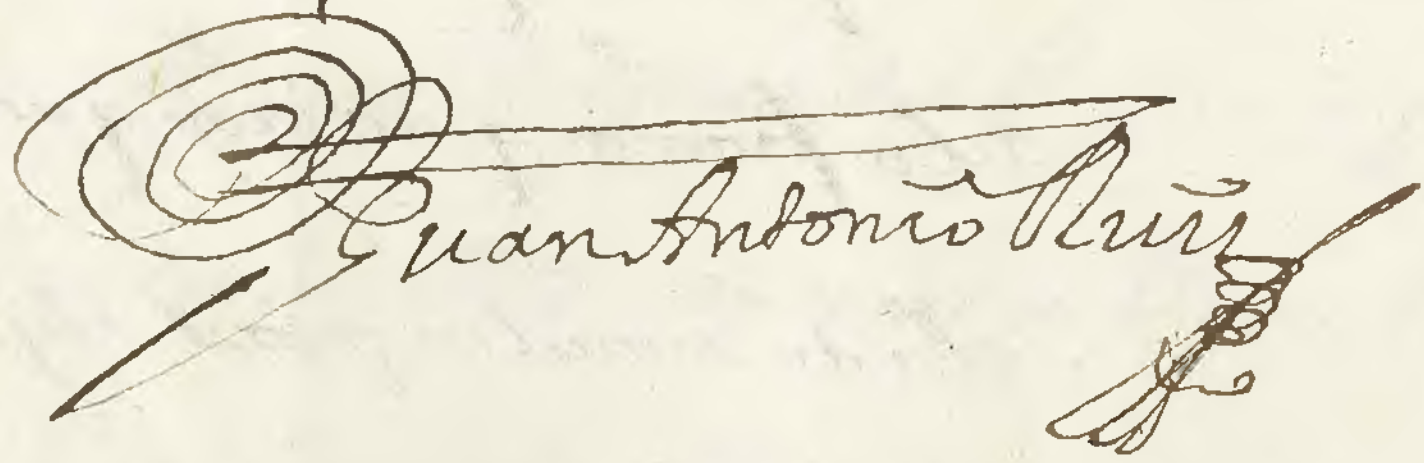 Juan Antonio Ruiz